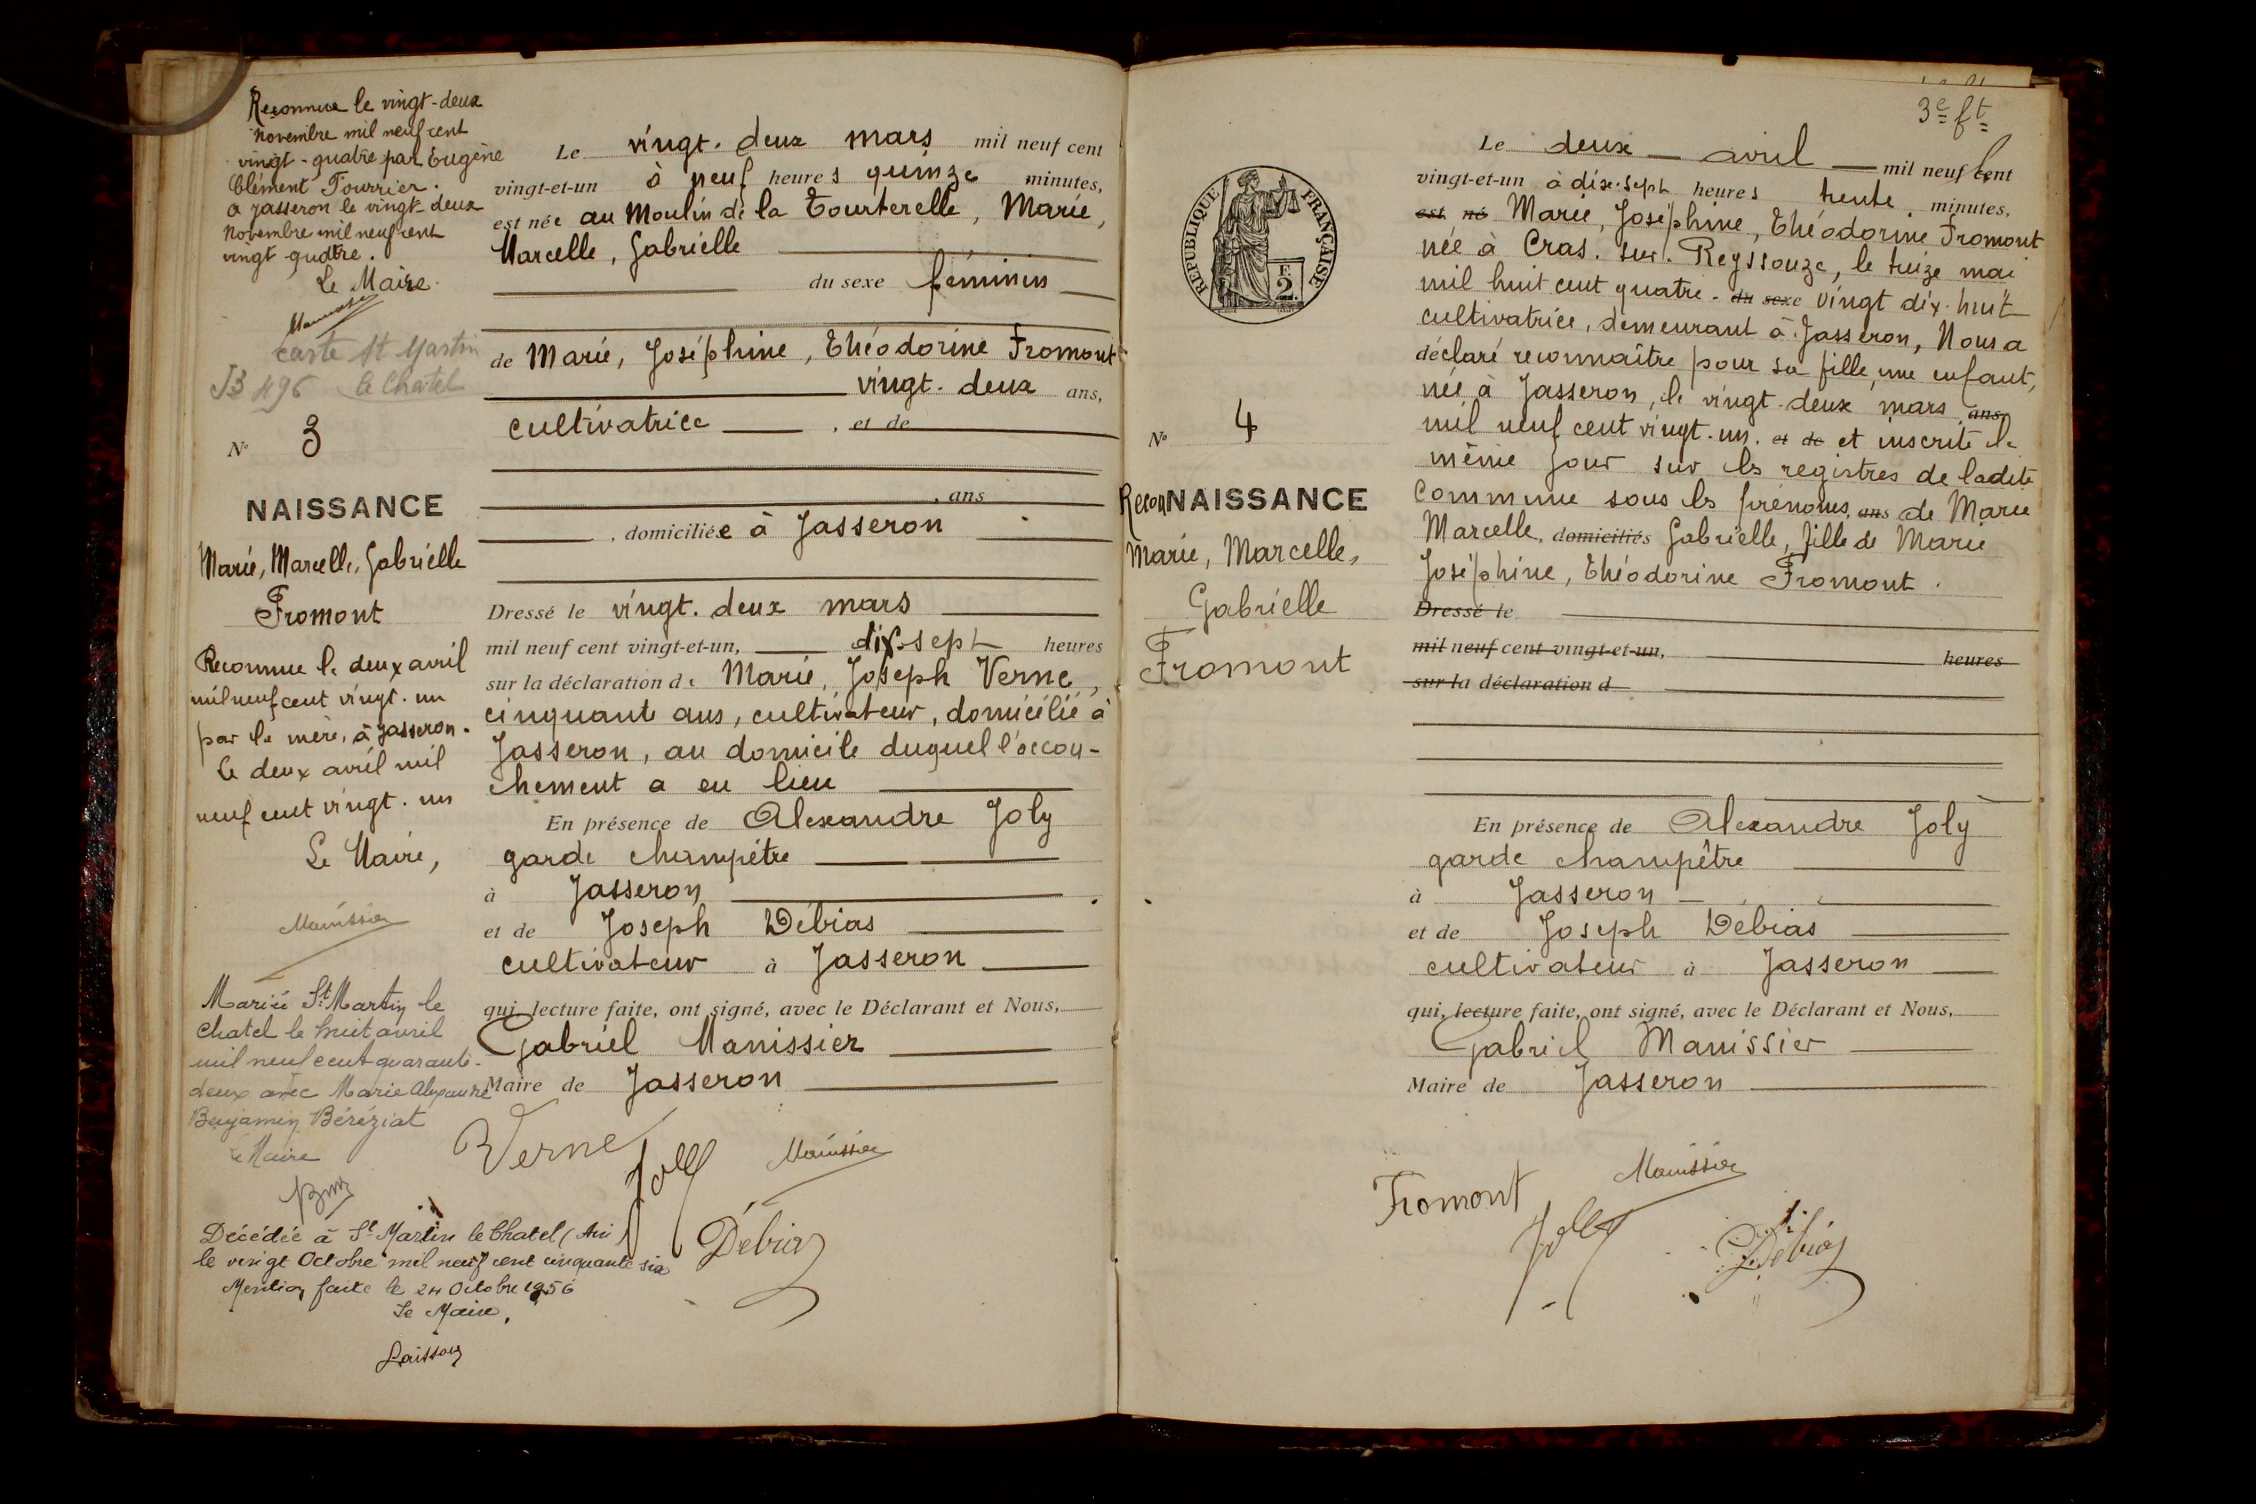 Reconnue le vingt-deux
novembre mil neuf cent
vingt-quatre par Eugène
Clément Fourrier.
a Jasseron le vingt-deux
Novembre mil neuf cent
vingt quatre.
Le Maire.
Carte St Martin
le Chatel
N° 3
NAISSANCE
Marie, Marcelle, Gabrielle
Fromont
Reconnue le deux avril
mil neuf cent vingt. un
par la mère, à Jasseron.
Le deux avril mil
neuf cent vingt. un
Le Maire,
Manissier
Mariée St Martin le
Chatel le huit avril
mil neuf cent quarante-
deux avec Marie Alexandre
Benjamin Béréziat
Le Maire
Décédée à St Martin le Chatel (Ain)
le vingt Octobre mil neuf cent cinquante six
Mention faite le 24 Octobre 1956
Le Maire,
Le vingt. deux mars mil neuf cent
vingt-et-un à neuf heures quinze minutes,
est née au Moulin de la Tourterelle, Marie,
Marcelle, Gabrielle
du sexe féminin
de Marie, Joséphine, Théodorine Fromont
vingt. deux ans,
cultivatrice , et de
, ans
, domiciliée à Jasseron
Dressé le vingt. deux mars
mil neuf cent vingt-et-un, dix-sept heures
sur la déclaration de Marie, Joseph Verne,
cinquante ans, cultivateur, domicilié à
Jasseron, au domicile duquel l'accou-
chement a eu lieu
En présence de Alexandre Joly
garde champêtre
à Jasseron
et de Joseph Débias
cultivateur à Jasseron
qui, lecture faite, ont signé, avec le Déclarant et Nous,
Gabriel Manissier
Maire de Jasseron
Verne
Joly
Manissier
Débias
3e ft
RÉPUBLIQUE FRANÇAISE
F.
2.
N° 4
ReconNAISSANCE
Marie, Marcelle,
Gabrielle
Fromont
Le deux avril mil neuf cent
vingt-et-un à dix-sept heures trente minutes,
est né Marie, Joséphine, Théodorine Fromont
née à Cras. sur. Reyssouze, le treize mai
mil huit cent quatre. du sexe vingt dix. huit
cultivatrice, demeurant à Jasseron, Nous a
déclaré reconnaître pour sa fille, une enfant,
née à Jasseron, le vingt. deux mars ans,
mil neuf cent vingt. un. et de et inscrite le
même jour sur les registres de ladite
Commune sous les prénoms, ans de Marie
Marcelle, domiciliés Gabrielle, fille de Marie
Joséphine, Théodorine Fromont.
Dressé le
mil neuf cent vingt-et-un, heures
sur la déclaration d
En présence de Alexandre Joly
garde champêtre
à Jasseron
et de Joseph Débias
cultivateur à Jasseron
qui, lecture faite, ont signé, avec le Déclarant et Nous,
Gabriel Manissier
Maire de Jasseron
Fromont
Manissier
Joly
Débias